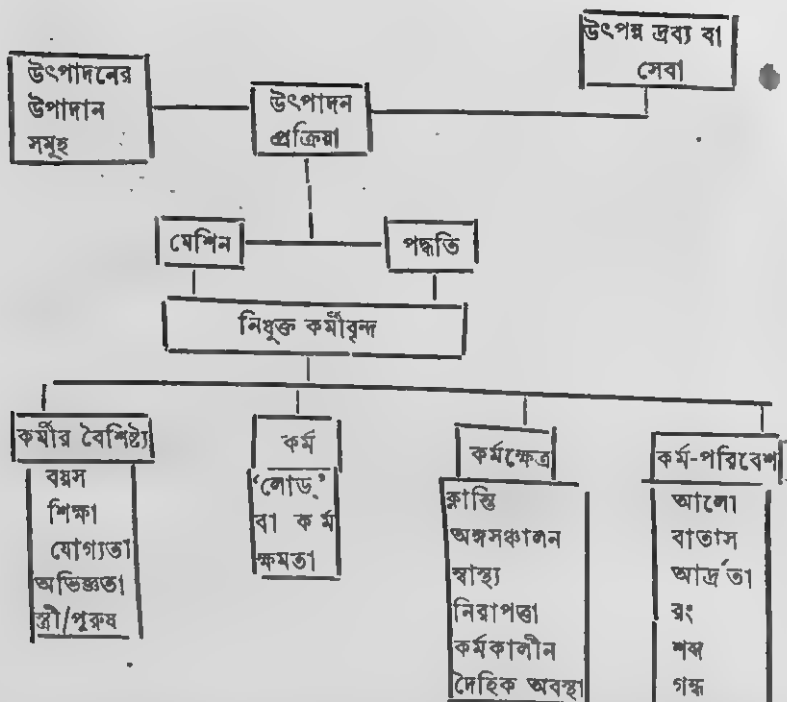 উৎপন্ন দ্রব্য বা
সেবা
উৎপাদনের
উপাদান
সমূহ
উৎপাদন
প্রক্রিয়া
মেশিন
পদ্ধতি
নিযুক্ত কর্মীবৃন্দ
কর্মীর বৈশিষ্ট্য
বয়স
শিক্ষা
যোগ্যতা
অভিজ্ঞতা
স্ত্রী/পুরুষ
কর্ম
'লোড্'
বা কর্ম
ক্ষমতা
কর্মক্ষেত্র
ক্লান্তি
অঙ্গসঞ্চালন
স্বাস্থ্য
নিরাপত্তা
কর্মকালীন
দৈহিক অবস্থা
কর্ম-পরিবেশ
আলো
বাতাস
আর্দ্রতা
রং
শব্দ
গন্ধ